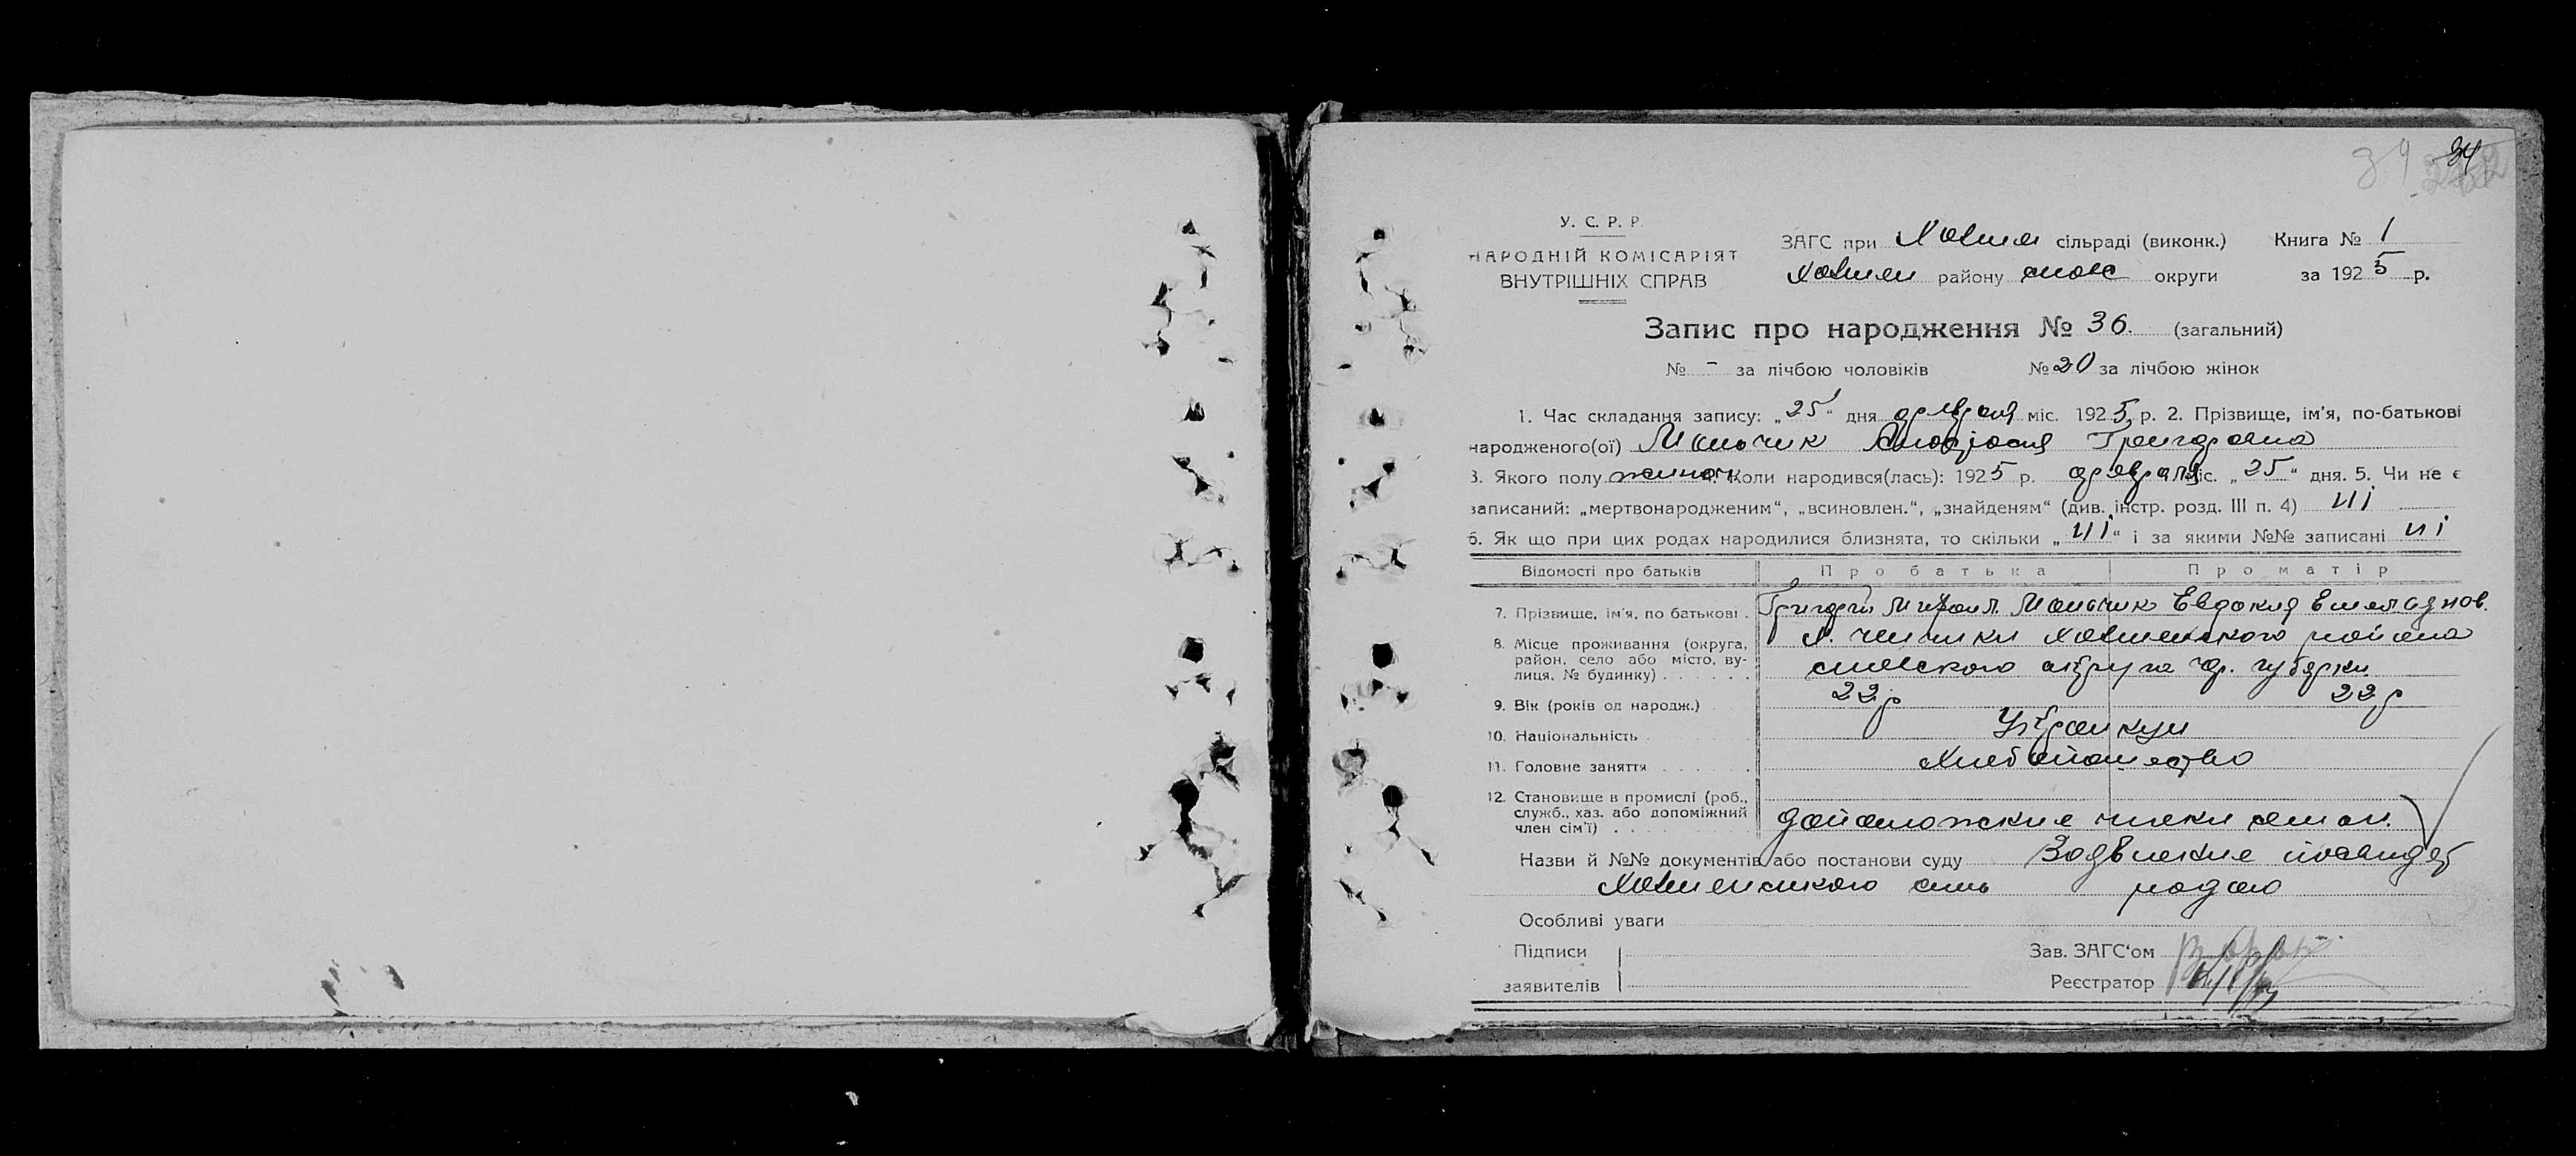 34
34
У. С. Р. Р.
НАРОДНІЙ КОМІСАРІЯТ
ВНУТРІШНІХ СПРАВ
ЗАГС при Ховмем сільраді (виконк.) Книга № 1
Ховмем району снов округи за 1925 р.
Запис про народження № 36. (загальний)
№ - за лічбою чоловіків № 20 за лічбою жінок
1. Час складання запису: „25“ дня февраля міс. 1925 р. 2. Прізвище, ім'я, по-батькові
народженого(ої) Григоровна
3. Якого полу жиноч 4. Коли народився(лась): 1925 р. февраля міс. „25“ дня. 5. Чи не є
записаний: „мертвонародженим“, „всиновлен.“, „знайденям“ (див. інстр. розд. III п. 4) ні
6. Як що при цих родах народилися близнята, то скільки „ні“ і за якими №№ записані ні
Відомості про батьків Про батька Про матір
7. Прізвище, ім'я, по батькові . Григорий Михаил. Евдокия Емельянов.
8. Місце проживання (округа, район, село або місто, вулиця, № будинку) . . . . . . х. Ховменского района
округа губерни
9. Вік (років од народж.) 22 р 22 р
10. Національність
11. Головне заняття . . . . . . Хлебопашество
12. Становище в промислі (роб., служб., хаз. або допоміжний член сім'ї) . . . . . . члени семи.
Назви й №№ документів або постанови суду
Ховменского сель радою
Особливі уваги
Підписи
заявителів
Зав. ЗАГС'ом
Реєстратор